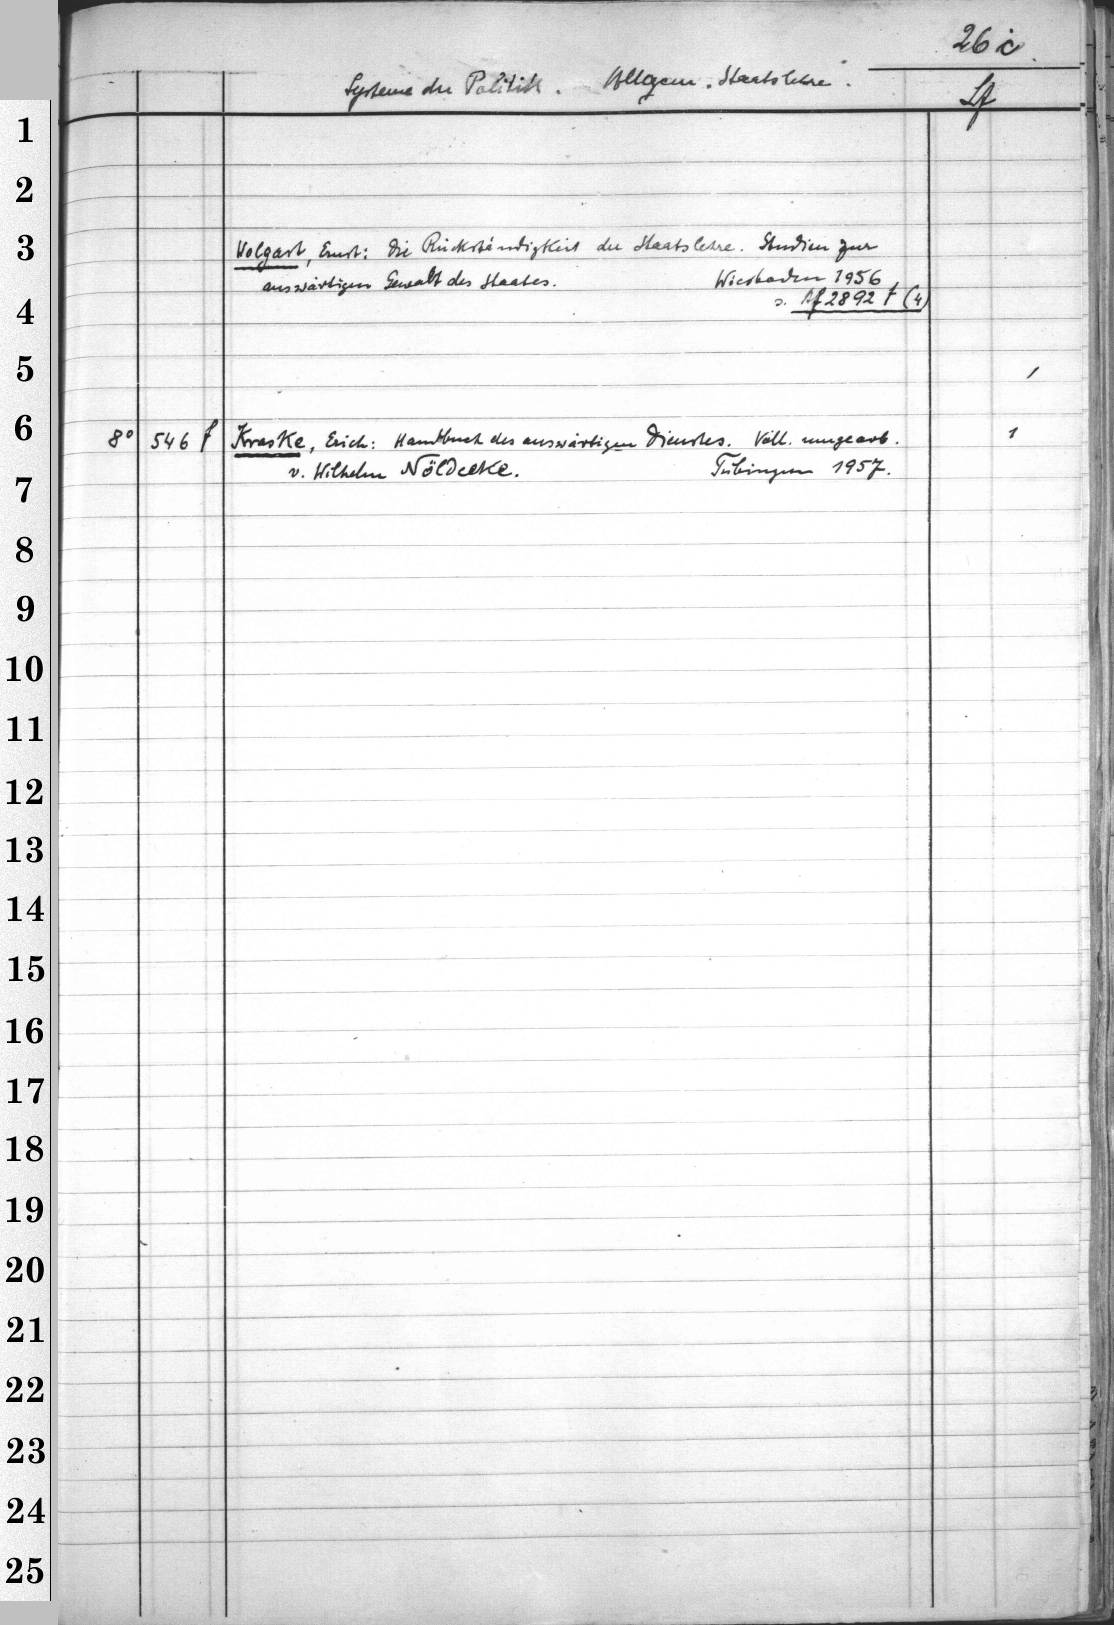 26 ic
Systeme der Politik. Allgem. Staatslehre.
Lf
1
2
3
Wolgast, Ernst: Die Rückständigkeit der Staatslehre. Studien zur
auswärtigen Gewalt des Staates. Wiesbaden 1956
s. Af 2892 t (4)
4
5
6
8° 546 f Kraske, Erich: Handbuch des auswärtigen Dienstes. Völl. umgearb. 1
v. Wilhelm Nöldeke. Tübingen 1957.
7
8
9
10
11
12
13
14
15
16
17
18
19
20
21
22
23
24
25